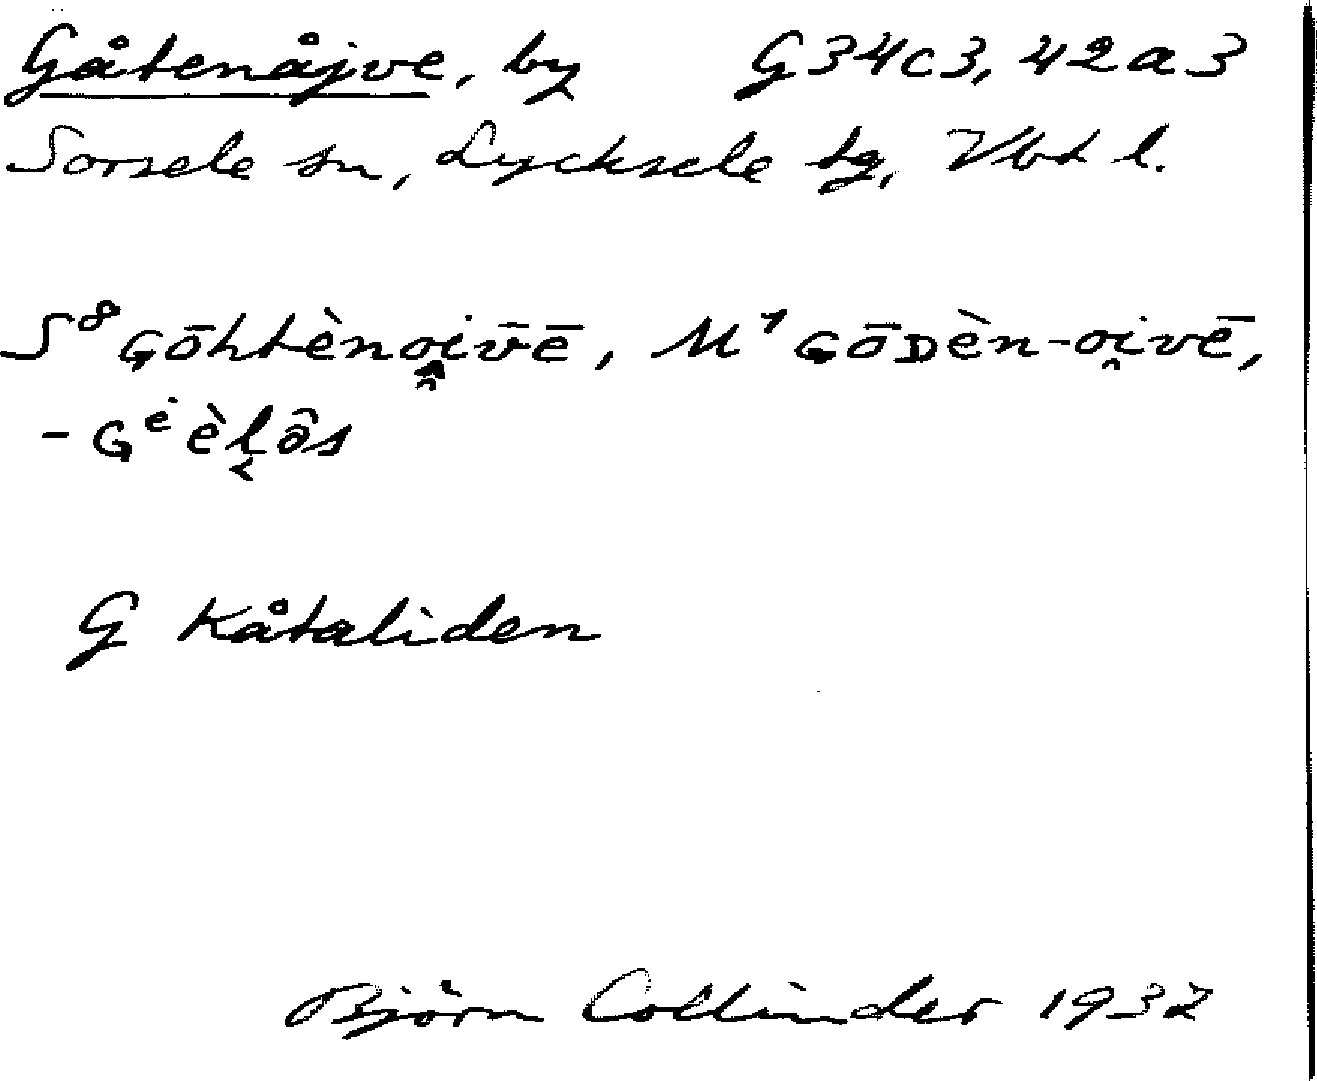 Gåtenåjve, by G34c3, 42a3
Sorsele sn, Lycksele tg, Vbt l.
S⁸ Gōhtèno̭iv̄ē, M¹ GōDèn-o̭ivē,
-Gėèl̬ôs
G Kåtaliden
Björn Collinder 1932